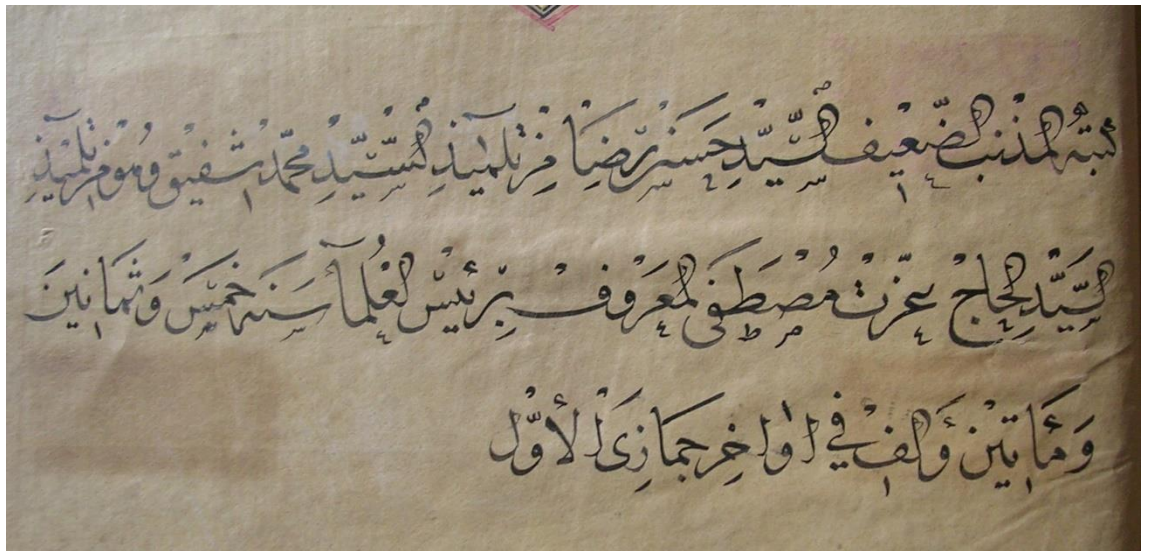 كتبه المذنب الضعيف السيد حسن رضا من تلاميذ السيد محمد شفيق وهو من تلميذ
السيد الحاج عزت مصطفى المعروف برئيس العلما سنه خمس وثمانين
ومأتين وألف في اواخر جمازى الأول